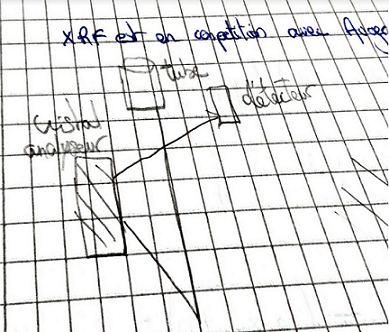 XRF est en compétition avec Auger
tube
détecteur
cristal
analyseur